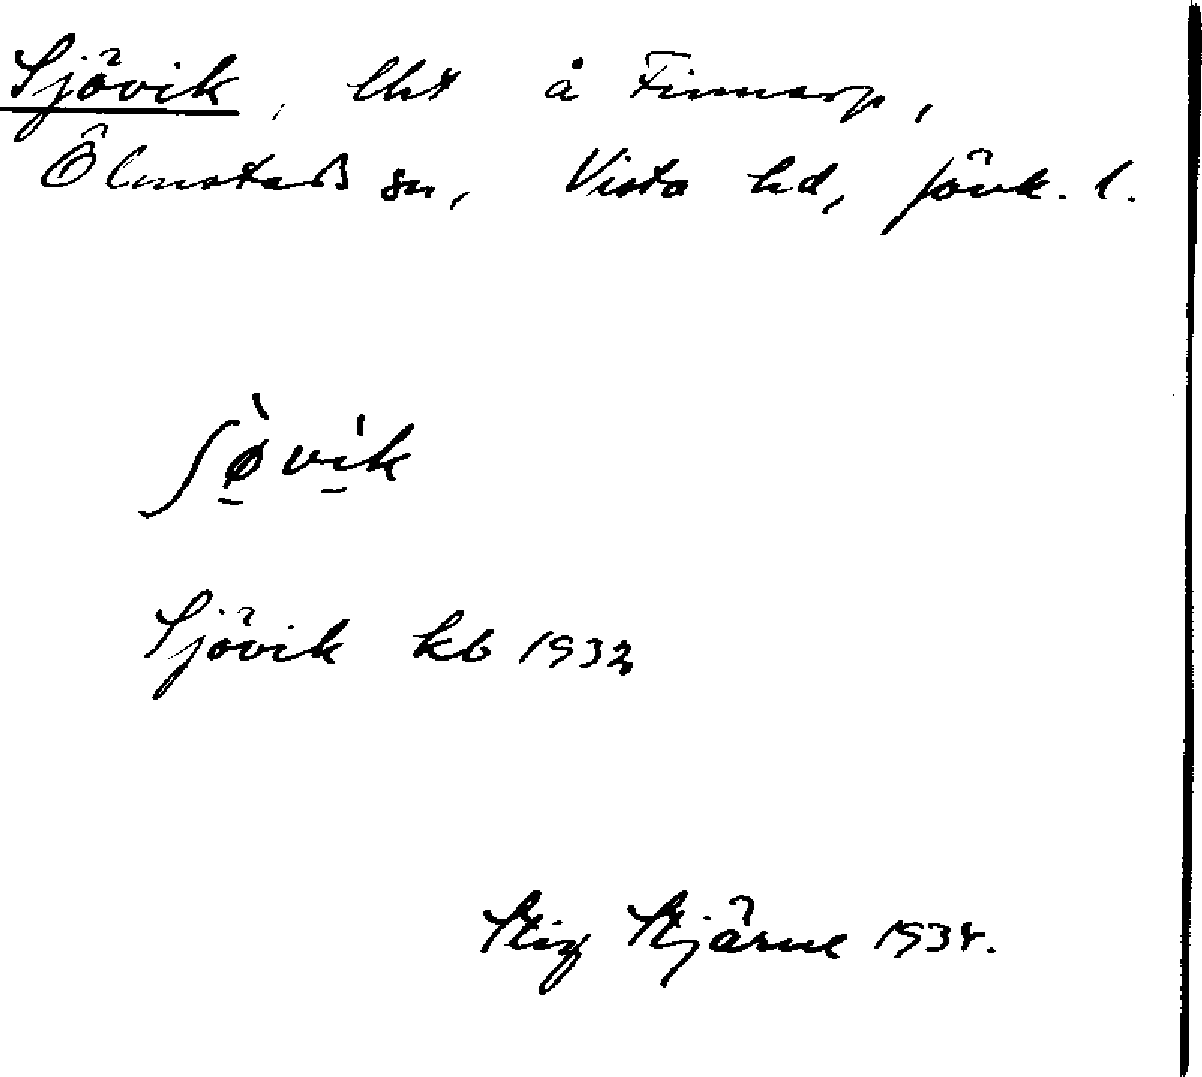 Sjövik, lht å Finnarp,
Ölmstads sn, Vista hd, Jönk. l.
ʃø̠̀vi̠'k
Sjövik kb 1932
Stig Stjärne 1934.